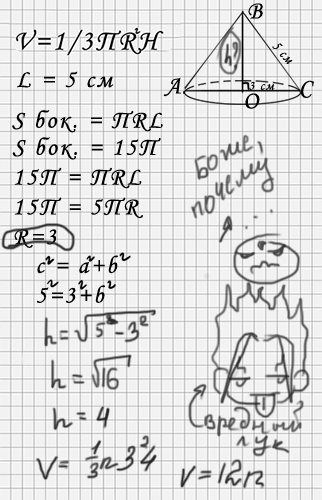 V=1/3ПR²H
L = 5 см
S бок. = ПRL
S бок. = 15П
15П = ПRL
15П = 5ПR
R=3
c² = a²+b²
5²=3²+b²
h=√5²-3²
h=√16
h = 4
V= 1/3п3²4
V=12п
B
h?
5 см
A
3 см
O
C
Боже,
почему
...
вредный
лук